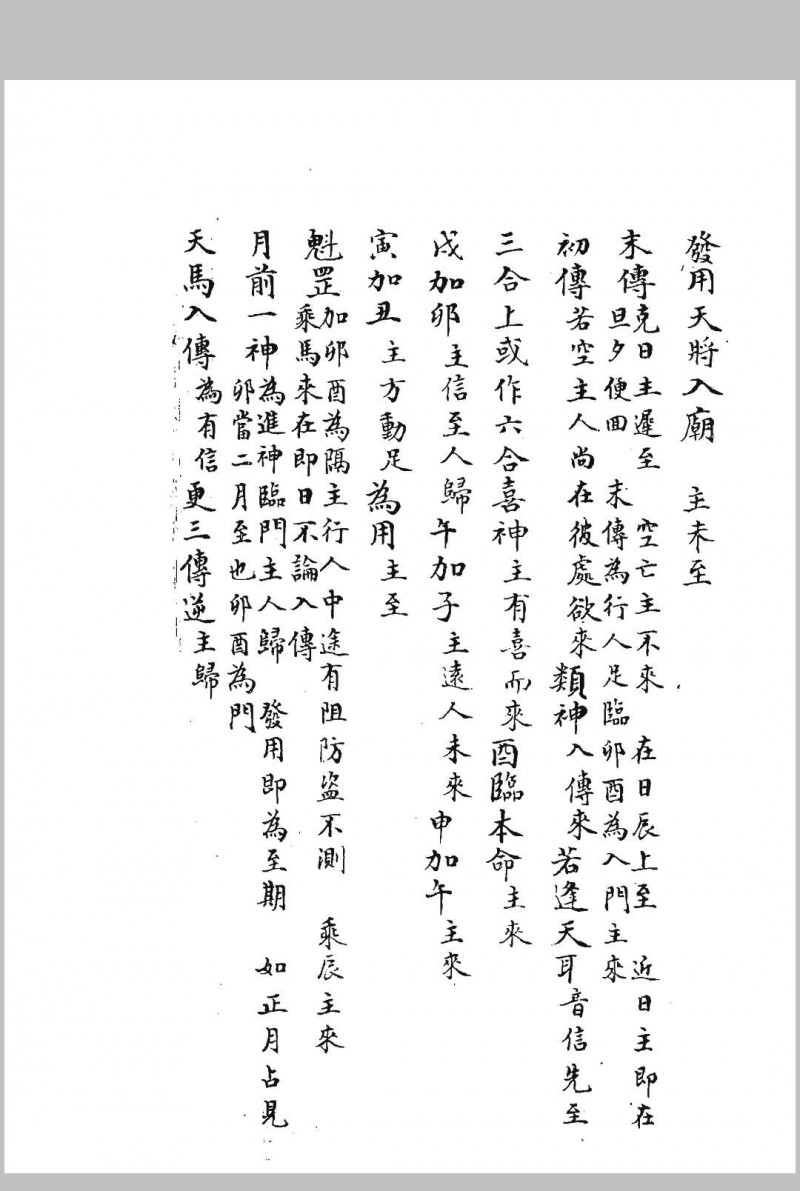 發用天將入廟　主未至
末傳克日主遲至　空亡主不來　在日辰上至　近日主即在
旦夕便回　末傳為行人足臨卯酉為入門主來
初傳若空主人尚在彼處欲來類神入傳來若逢天耳音信先至
三合上或作六合喜神主有喜而來酉臨本命主來
戌加卯主信至人歸午加子主遠人未來申加午主來
寅加丑主方動足為用主至
魁罡加卯酉為隔主行人中途有阻防盜不測　乘辰主來
乘馬來在即日不論入傳
月前一神為進神臨門主人歸　發用即為至期　如正月占見
卯當二月至也卯酉為門
天馬入傳為有信更三傳逆主歸